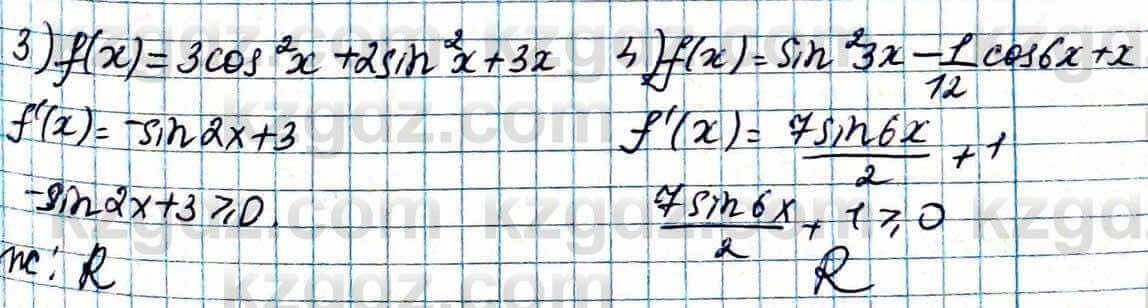 3) f(x) = 3cos²x + 2sin²x + 3x
f'(x) = -sin2x + 3
-sin2x + 3 ⩾ 0.
пс: R
4) f(x) = sin²3x - 1/12 cos6x + x
f'(x) = 7sin6x/2 + 1
7sin6x/2 + 1 ⩾ 0
R
kzgdz.com